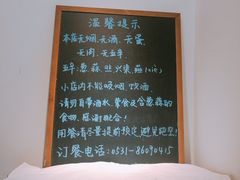 温馨提示
本店无烟、无酒、无蛋、
无肉、无五辛。
五辛:葱、蒜、韭、兴渠、薤(xiè)
小店内不能吸烟、饮酒
请勿自带酒水、荤食及含葱蒜的
食物,感谢配合!
用餐请尽量提前预定,避免跑空!
订餐电话:0531-86090415